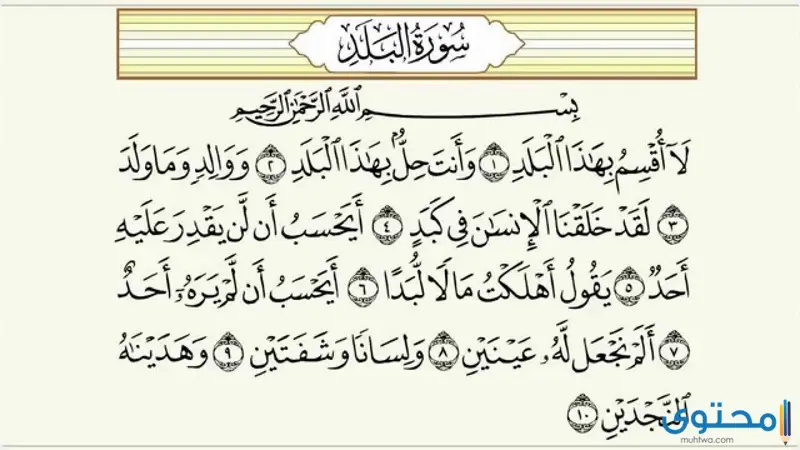 سُورَةُ الْبَلَدِ
بِسْمِ اللَّهِ الرَّحْمَٰنِ الرَّحِيمِ
لَآ أُقْسِمُ بِهَٰذَا الْبَلَدِ ١ وَأَنتَ حِلٌّۢ بِهَٰذَا الْبَلَدِ ٢ وَوَالِدٍ وَمَا وَلَدَ
٣ لَقَدْ خَلَقْنَا الْإِنسَٰنَ فِي كَبَدٍ ٤ أَيَحْسَبُ أَن لَّن يَقْدِرَ عَلَيْهِ
أَحَدٌ ٥ يَقُولُ أَهْلَكْتُ مَالًا لُّبَدًا ٦ أَيَحْسَبُ أَن لَّمْ يَرَهُۥٓ أَحَدٌ
٧ أَلَمْ نَجْعَل لَّهُۥ عَيْنَيْنِ ٨ وَلِسَانًا وَشَفَتَيْنِ ٩ وَهَدَيْنَٰهُ
النَّجْدَيْنِ ١٠
محتوى
muhtwa.com